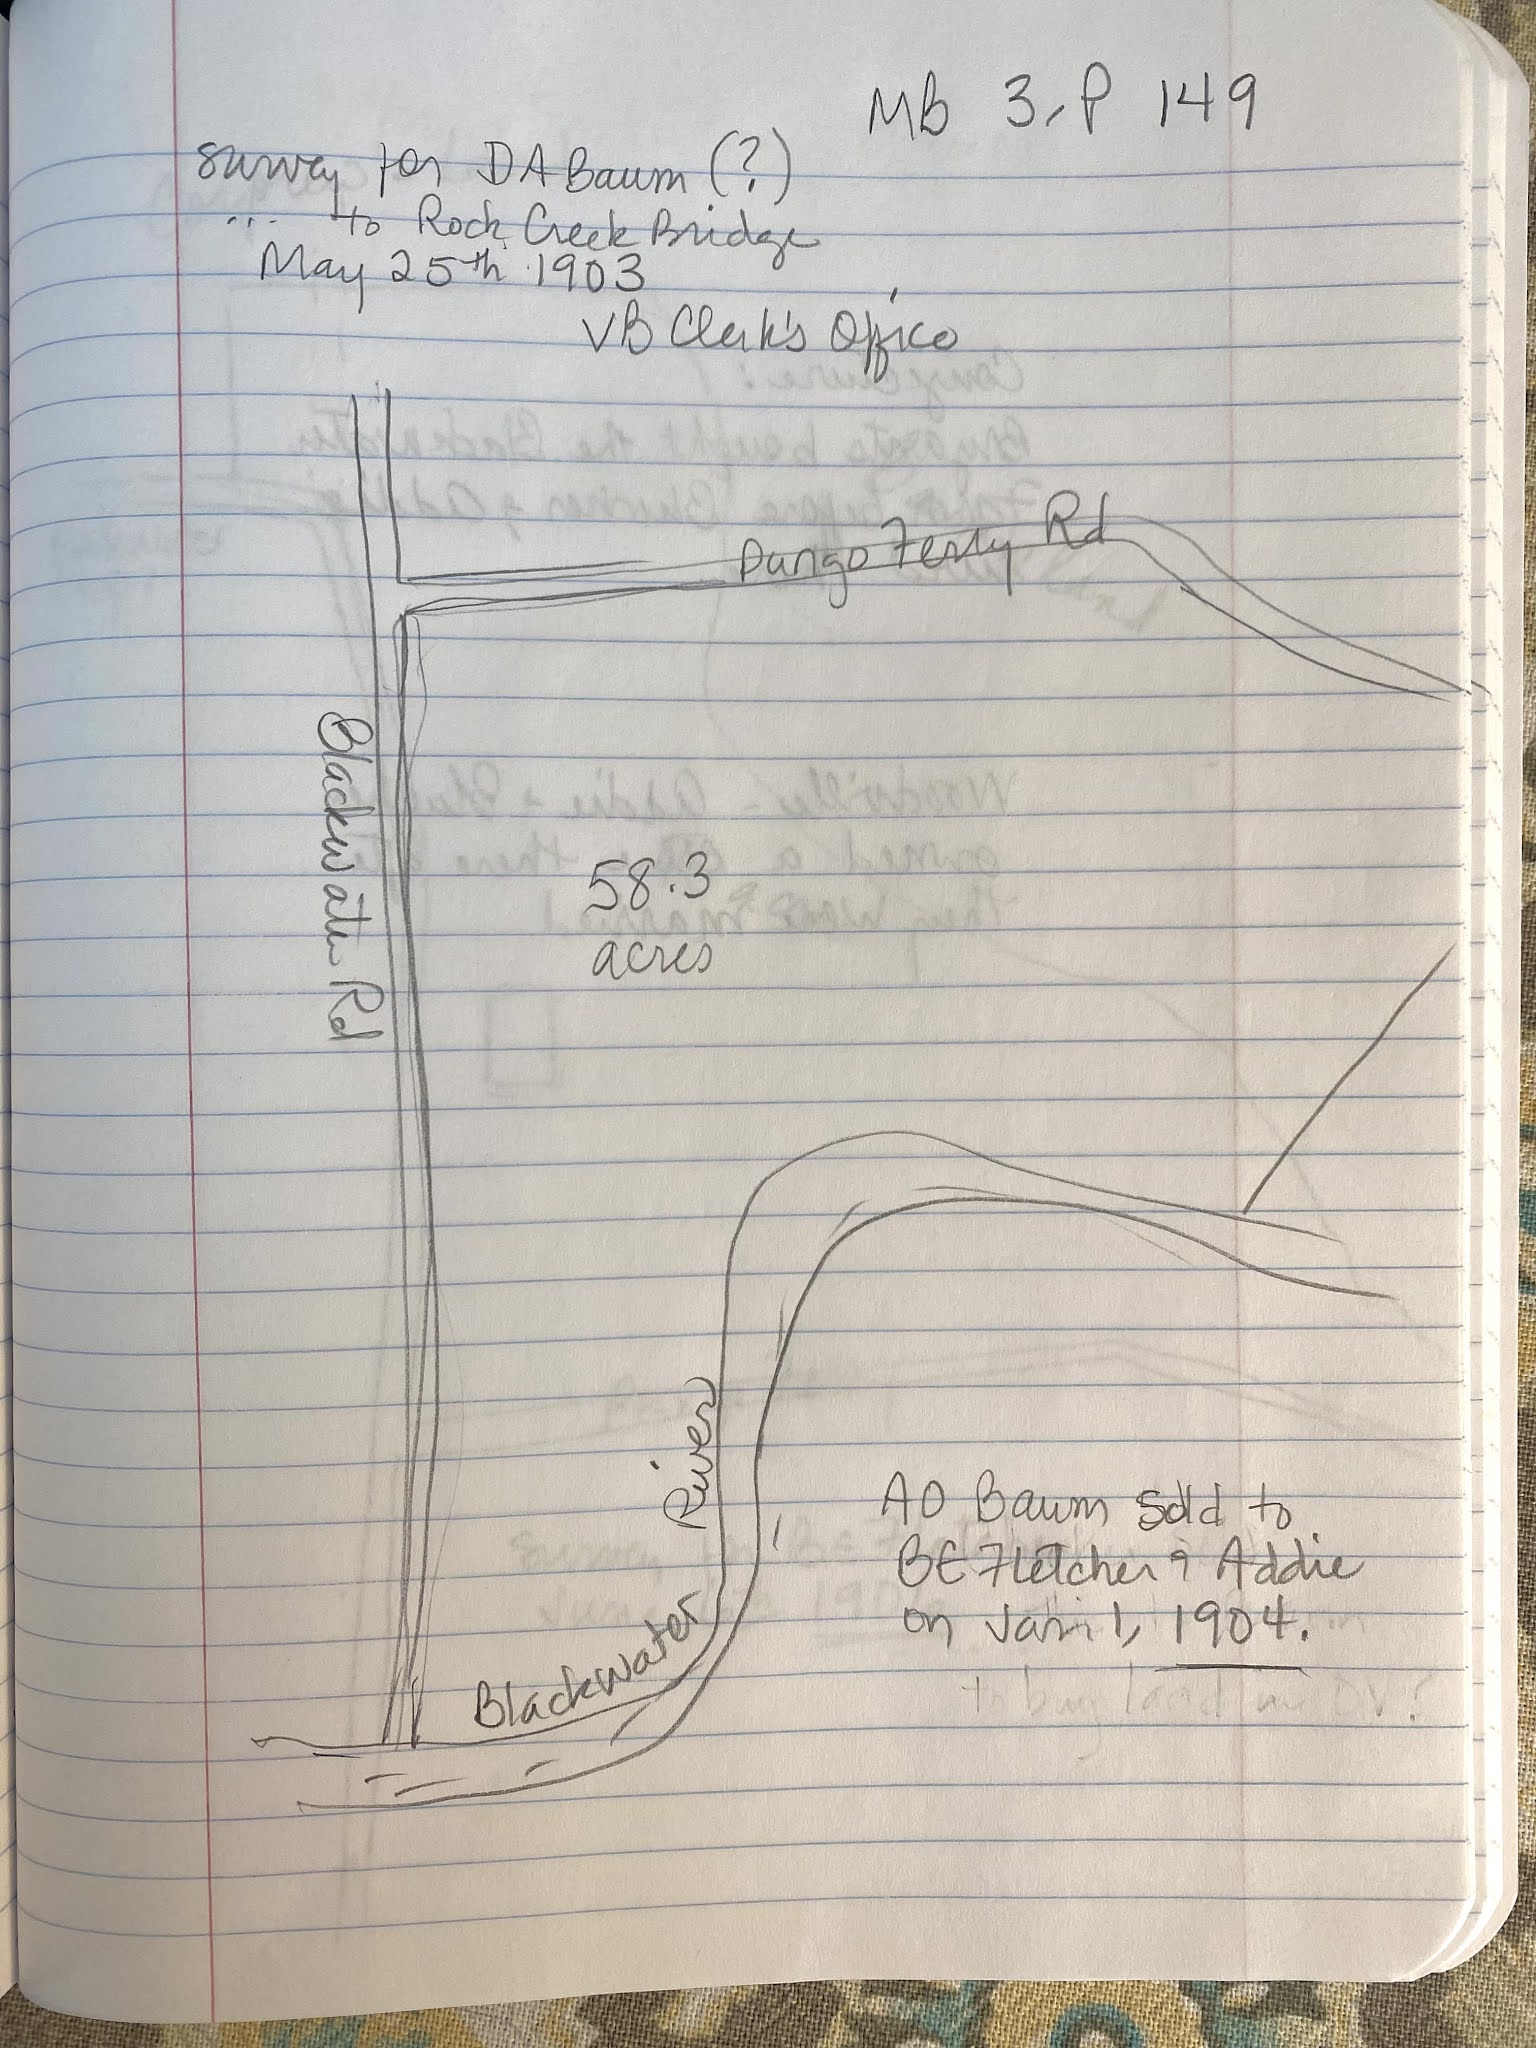 MB 3, P 149
survey for DA Baum (?)
... to Rock Creek Bridge
May 25th 1903
VB Clerk's Office
Pungo Ferry Rd
Blackwater Rd
58.3
acres
River
Blackwater
AO Baum sold to
BE Fletcher & Addie
on Jan 1, 1904.
to buy land in DV?